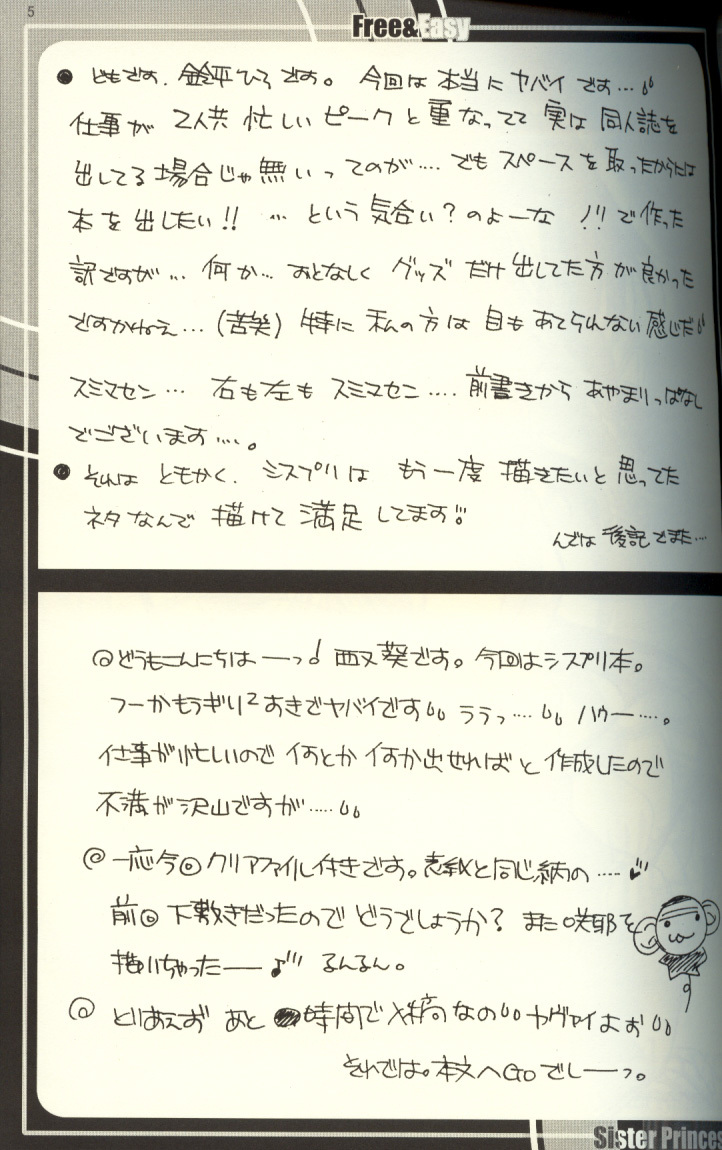 5
Free&Easy
● ども です. 鈴平ひろ です。 今回は 本当に ヤバイ です…
仕事が 2人共 忙しい ピークと 重なってて 実は 同人誌を
出してる 場合じゃ 無いってのが…. でも スペースを 取ったからには
本を 出したい!! … という 気合い?のよーな ノリで 作った
訳ですが… 何か… おとなしく グッズ だけ 出してた方が 良かった
ですかねえ…(苦笑) 特に 私の方は 目も あてられない 感じだ
スミマセン… 右も左も スミマセン…. 前書きから あやまりっぱなし
でございます….。
● それは ともかく. シスプリは もう一度 描きたいと 思ってた
ネタなんで 描けて 満足 してます!!
んでは 後記でまた…
@どうもこんにちはーっ♪ 西又 葵です。今回はシスプリ本。
つーかもうギリ2あきでヤバイです ううっ…. ハウー….。
仕事が忙しいので 何とか 何か出せればと 作成したので
不満が沢山ですが…..
@ 一応今回クリアファイル付きです。表紙と同じ絵柄の….
前回下敷きだったので どうでしょうか? また 咲耶を
描いちゃったー♪ るんるん。
@ とりあえず あと 時間で入稿なの ヤヴァイよぉ
それでは。本文へGoでしーっ。
Sister Princes